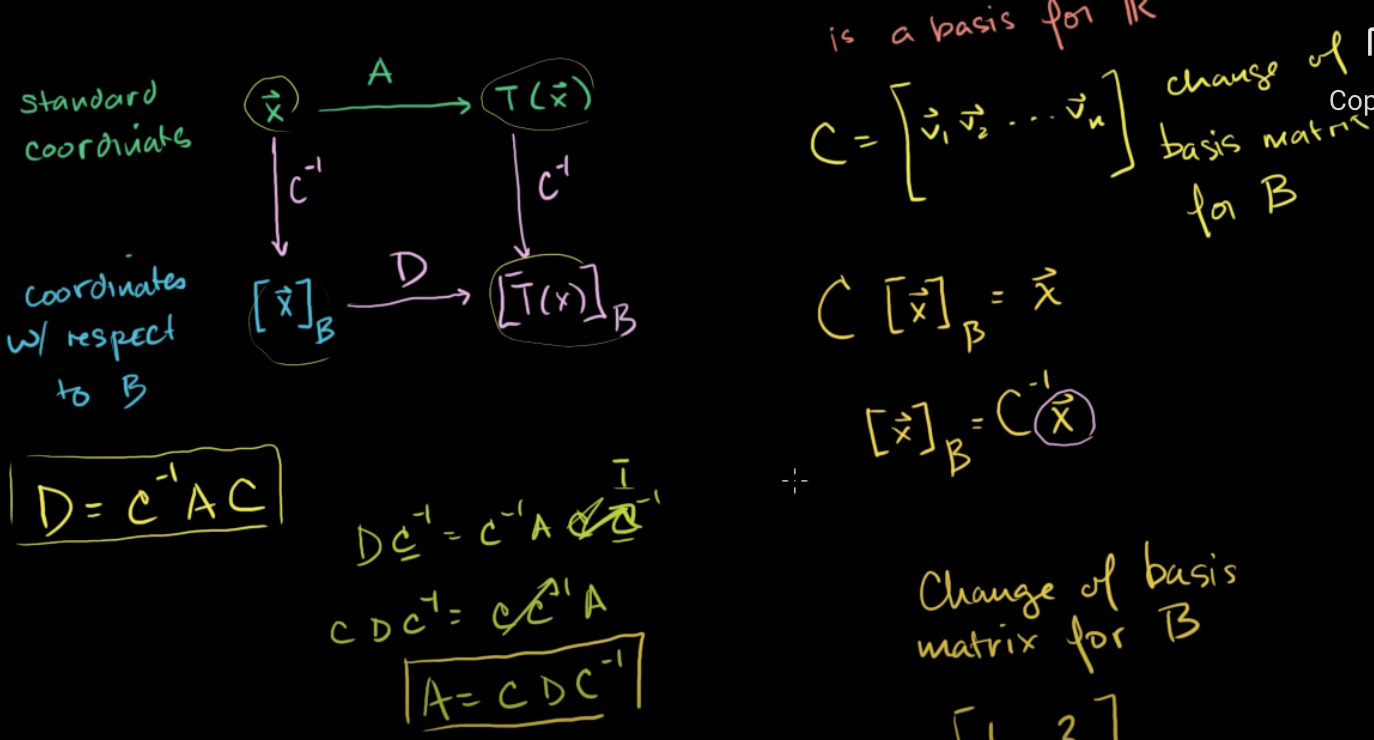 is a basis for ℝ
standard
coordinates
x⃗ A T(x⃗)
C⁻¹ C⁻¹
coordinates
w/ respect
to B
[x⃗]_B D [T(x)]_B
D = C⁻¹ A C
D C⁻¹ = C⁻¹ A C C⁻¹ I
C D C⁻¹ = C C⁻¹ A
A = C D C⁻¹
C = [v⃗₁ v⃗₂ ... v⃗ₙ] change of
basis matrix
for B
Cop
C [x⃗]_B = x⃗
[x⃗]_B = C⁻¹ x⃗
Change of basis
matrix for B